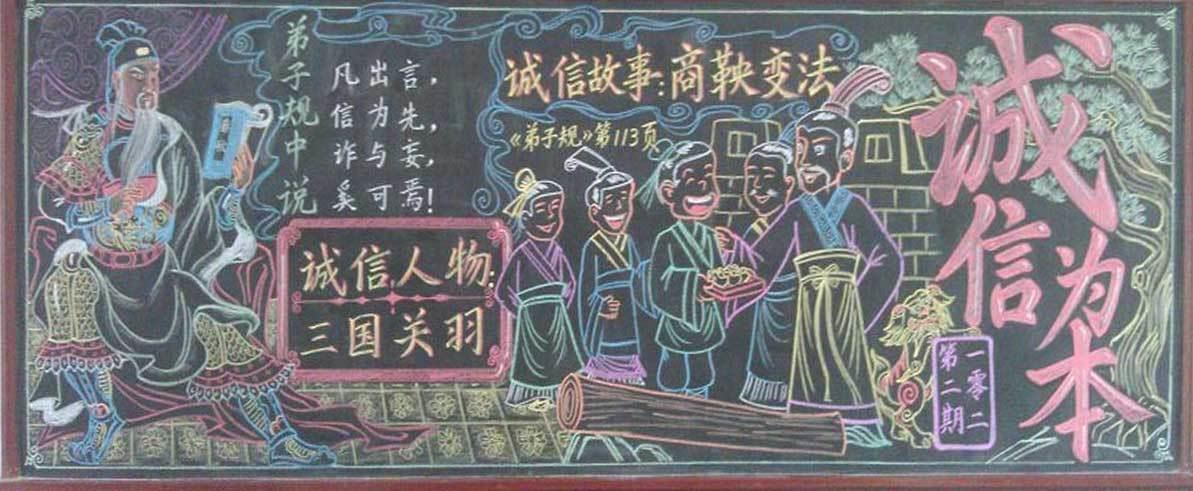 弟子规中说
凡出言,
信为先,
诈与妄,
奚可焉!
诚信人物:
三国关羽
诚信故事:商鞅变法
《弟子规》第113页
诚信为本
一零二
第二期